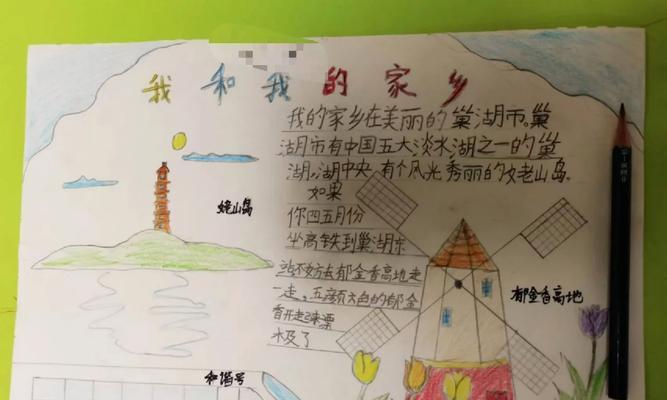 我和我的家乡
我的家乡在美丽的巢湖市。巢
湖市有中国五大淡水湖之一的巢
湖。湖中央有个风光秀丽的姥山岛。
如果
你四五月份
坐高铁到巢湖东
站不妨去郁金香高地走
一走。五颜六色的郁金
香开起来漂
极了
姥山岛
郁金香高地
和谐号